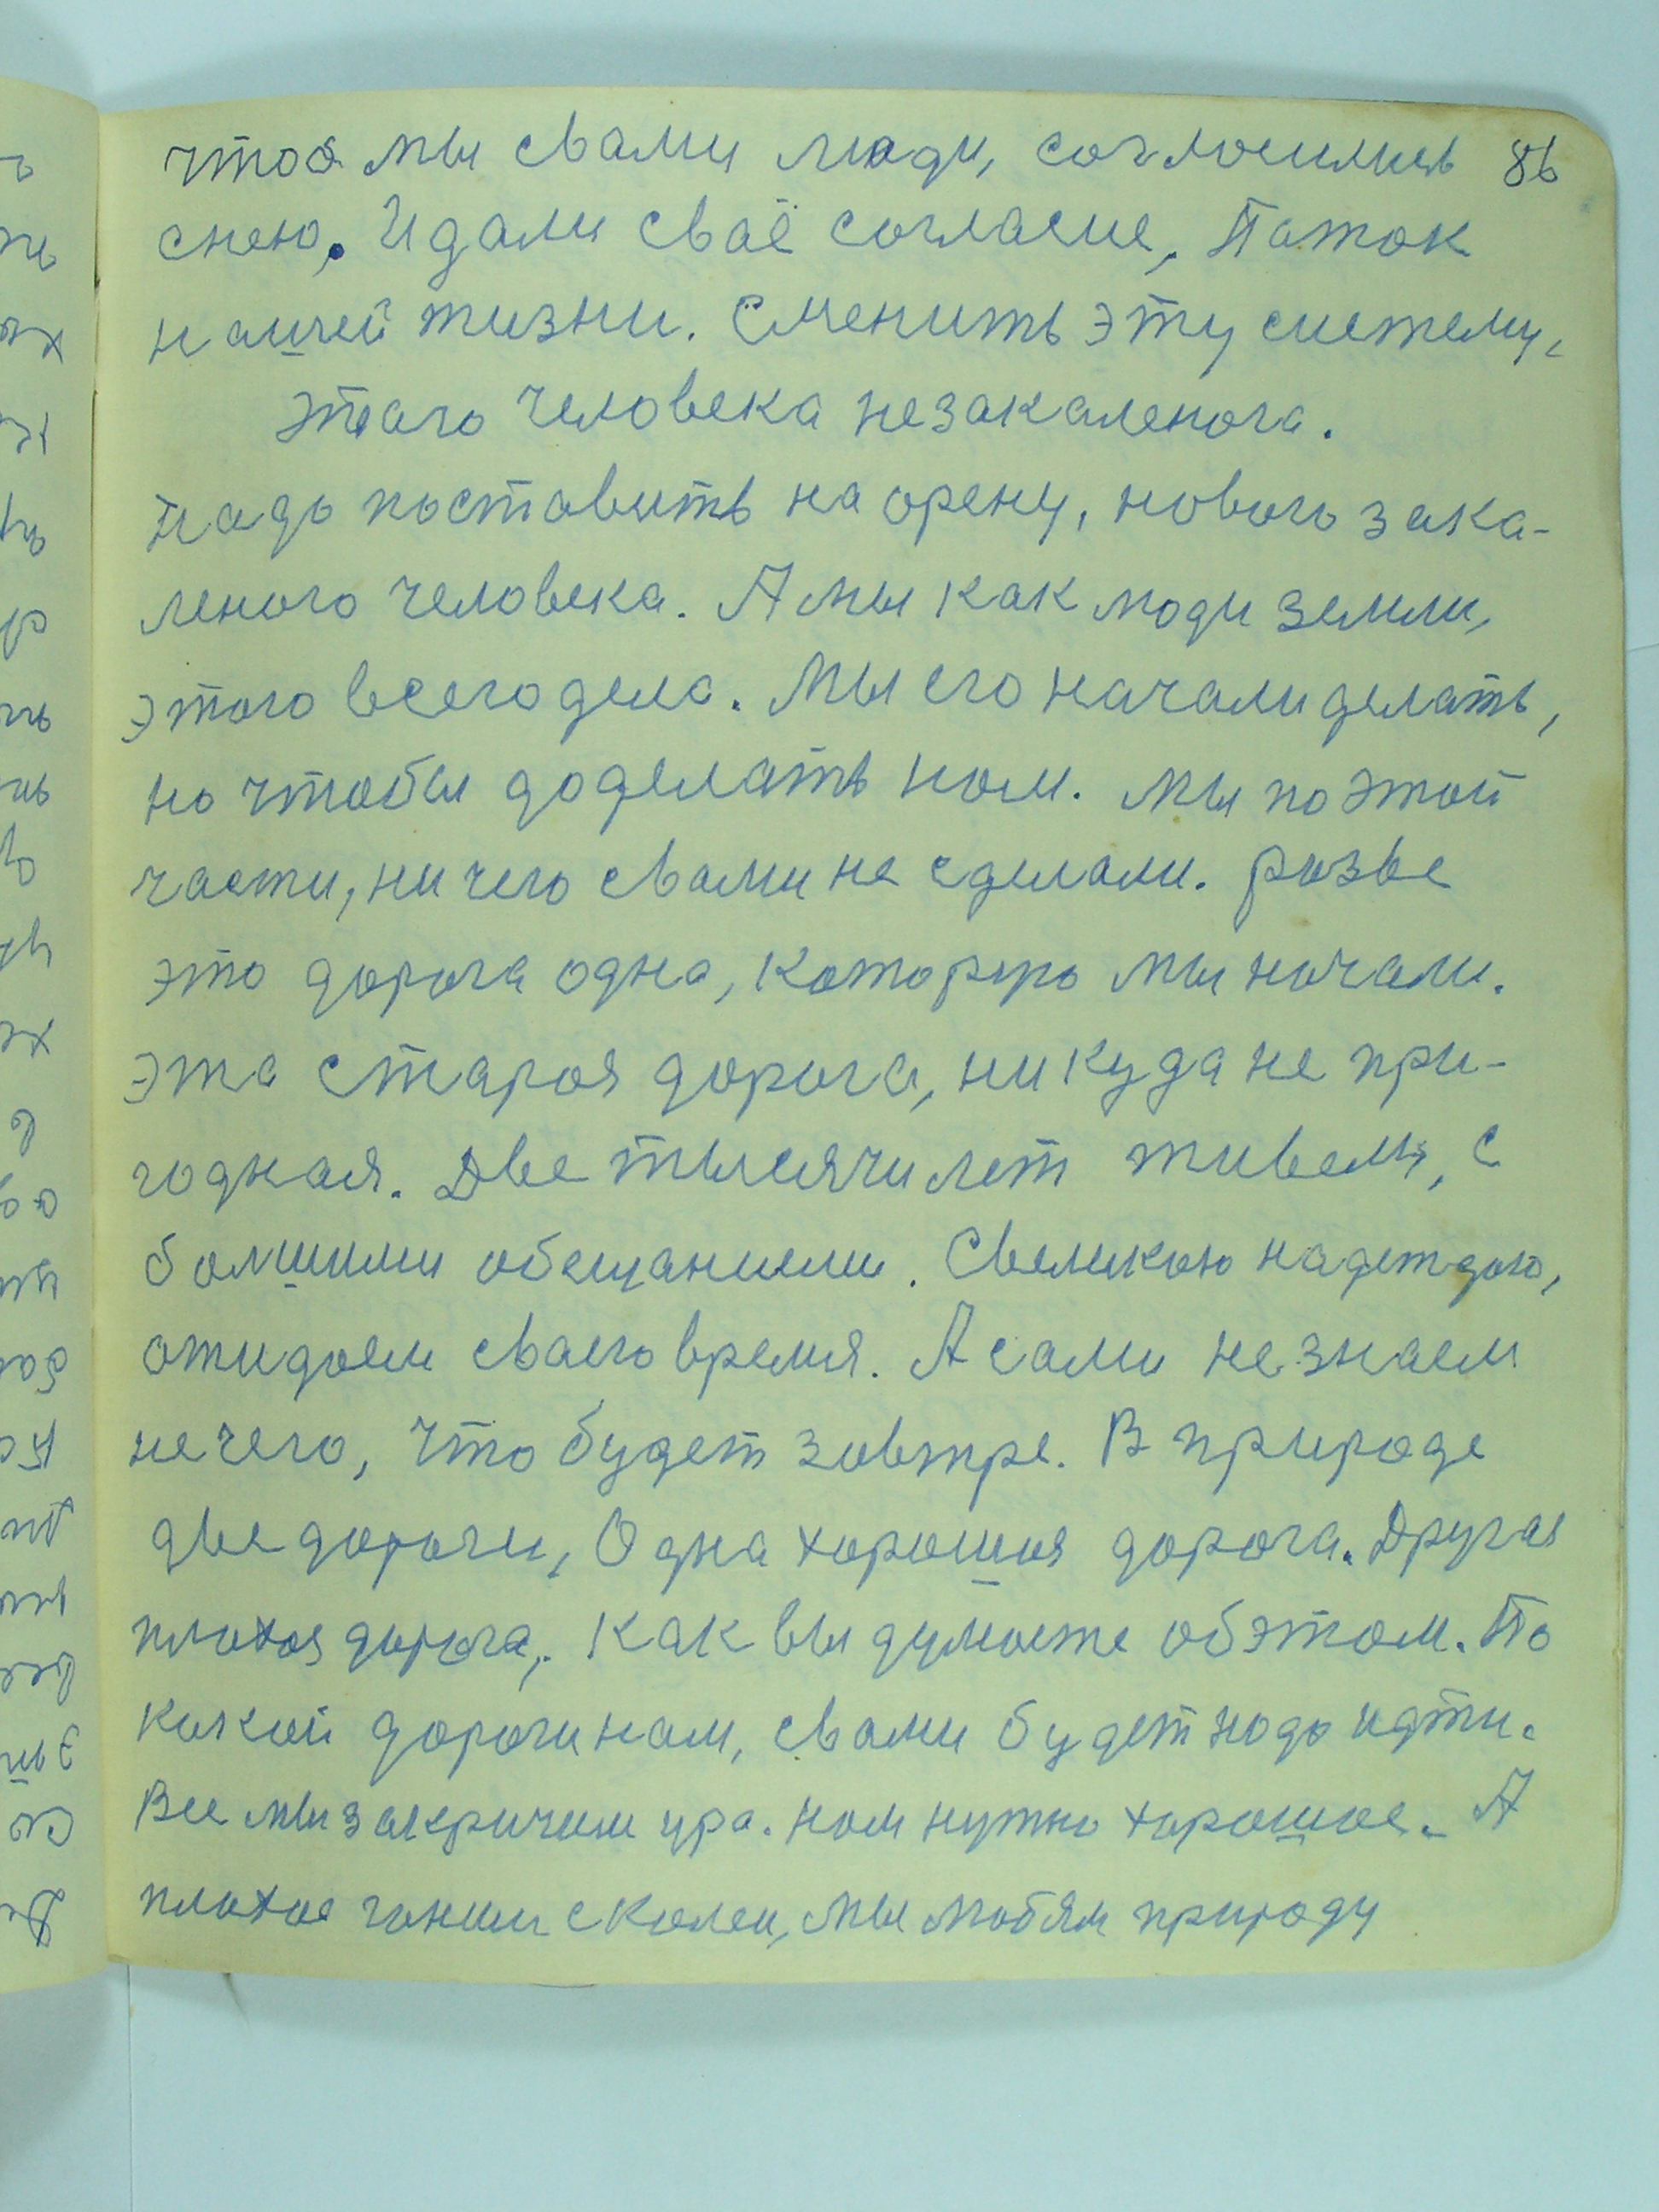 чтоб мы свами люди, согласились 86
снею. И дали сваё согласие, Паток
нашей жизни. Сменить эту систему,
этаго человека незакаленога.
надо поставить на орену, нового зака-
леного человека. А мы как люди земли,
этого всего дела. Мы его начали делать,
но чтобы доделать нам. Мы по этой
части, ни чего свами не сделали. разве
это дорога одна, которую мы начали.
эта старая дорога, ни куда не при-
годная. Две тысячи лет живем, с
большими обещаниями. Свеликою надеждою,
ожидаем сваего время. А сами не знаем
нечего, что будет завтре. В природе
две дороги, Одна хорошая дорога. Другая
плохая дорога,. Как вы думаете об этом. По
какой дороги нам, свами будет надо идти.
Все мы закричим ура. нам нужно хорошое. А
плохое гоним сколеи, мы любям природу